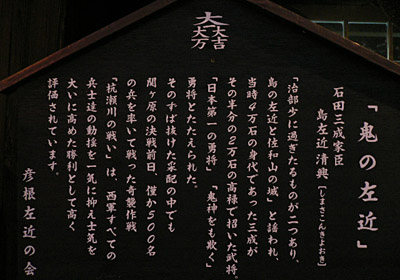 大一大万大吉
「鬼の左近」
石田三成家臣
島左近清興【しまさこんきよおき】
「治部少に過ぎたるものが二つあり、
島の左近と佐和山の城」と謡われ、
当時4万石の身代であった三成が
その半分の2万石の高禄で招いた武将。
「日本第一の勇将」「鬼神をも欺く」
勇将とたたえられた。
そのずば抜けた采配の中でも
関ヶ原の決戦前日、僅か500名
の兵を率いて戦った奇襲作戦
「杭瀬川の戦い」は、西軍すべての
兵士達の動揺を一気に抑え士気を
大いに高めた勝利として高く
評価されています。
彦根左近の会